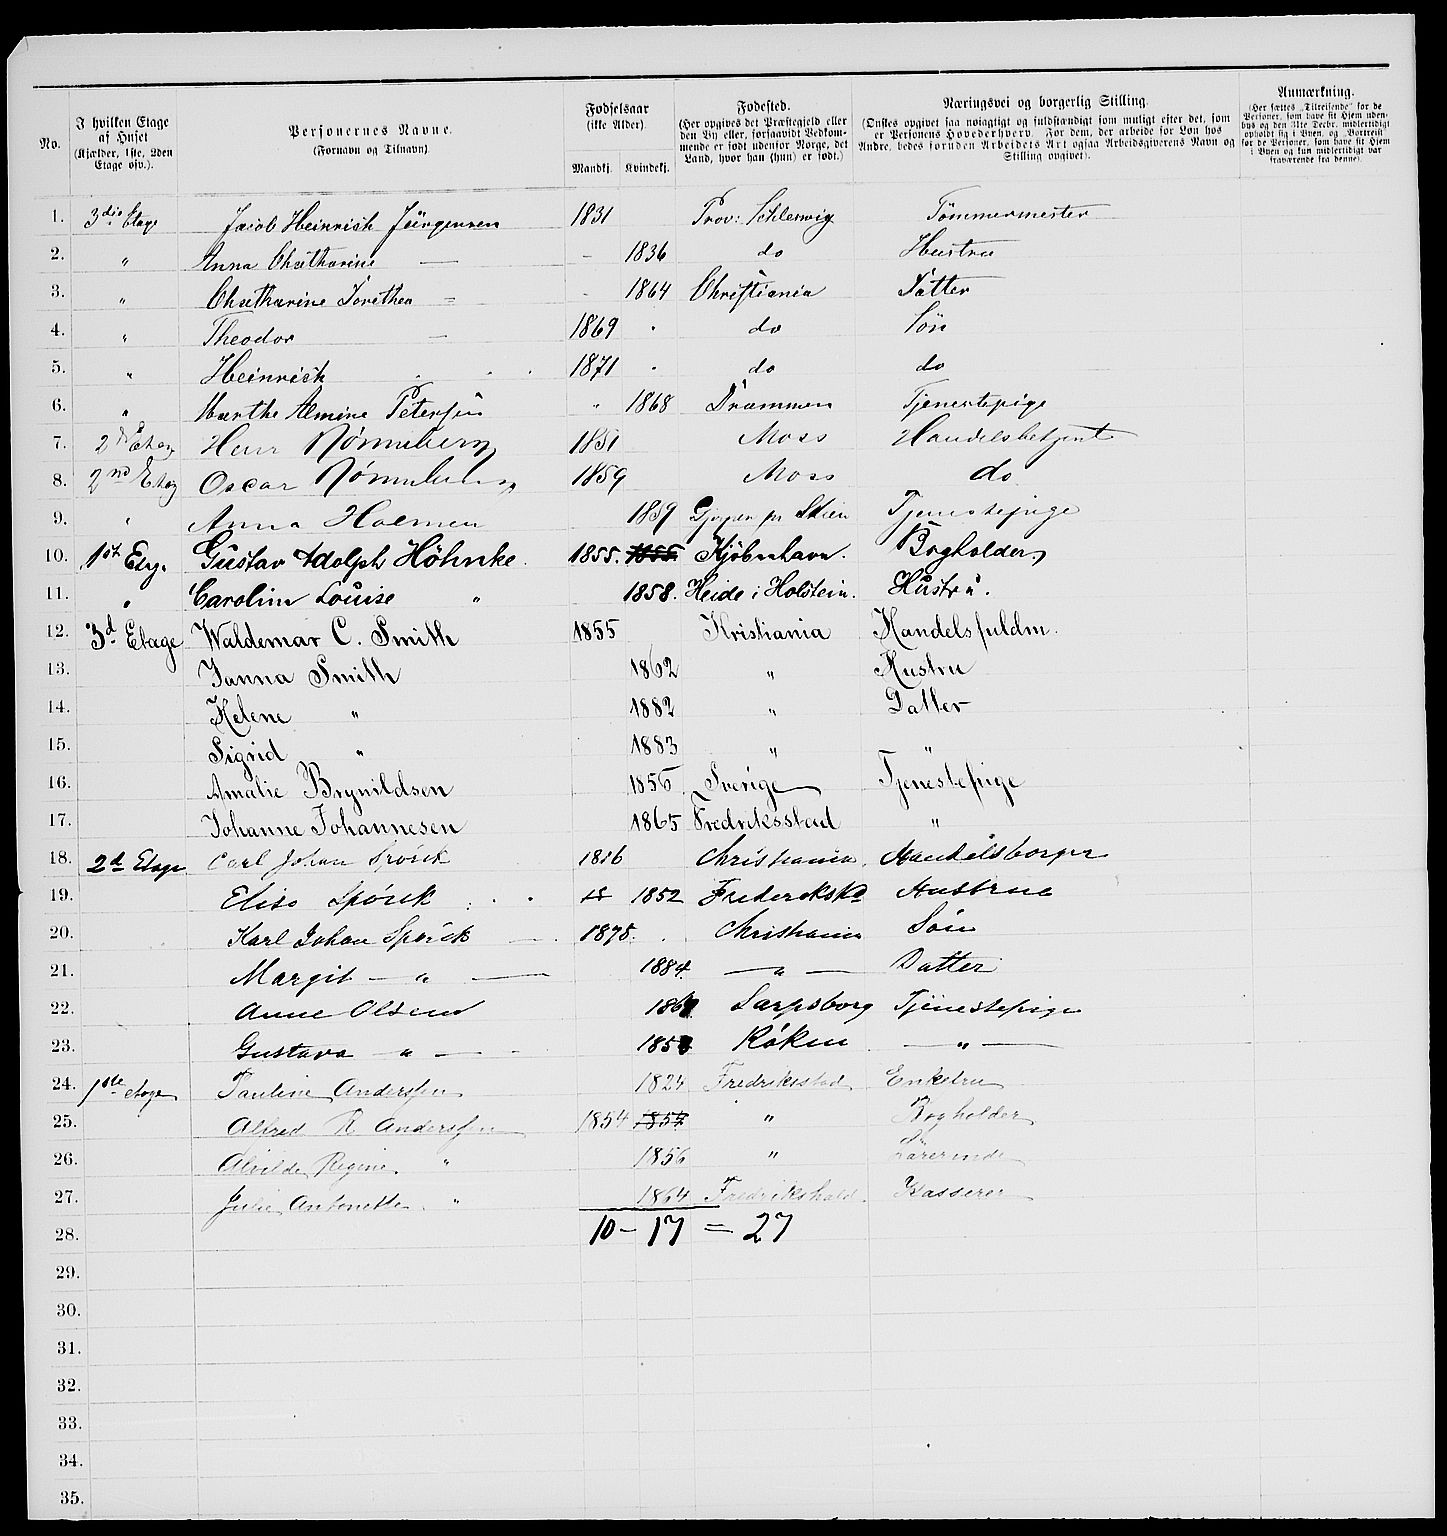 No.
I hvilken Etage af Huset
(Kjælder, 1ste, 2den Etage osv.).
Personernes Navne.
(Fornavn og Tilnavn).
Fødselsaar
(ikke Alder).
Mandkj. Kvindekj.
Fødested.
(Her opgives det Præstegjeld eller den By eller, forsaavidt Vedkommende er født udenfor Norge, det Land, hvor han (hun) er født.)
Næringsvei og borgerlig Stilling.
(Ønskes opgivet saa nøiagtigt og fuldstændigt som muligt efter det, som er Personens Hovederhverv. For dem, der arbeide for Løn hos Andre, bedes foruden Arbeidets Art ogsaa Arbeidsgiverens Navn og Stilling opgivet).
Anmærkning.
(Her sættes „Tilreisende" for de Personer, som have sit Hjem udenbys og den 31te Decbr. midlertidigt opholdt sig i Byen, og „Bortreist" for de Personer, som have sit Hjem i Byen og kun midlertidigt var fraværende fra denne).
1. 3die Etage Jacob Heinrich Jürgensen 1831 Prov: Schleswig Tömmermester
2. " Anna Chatharine — - 1836 do Hustru
3. " Chatharine Dorithea = - 1864 Christiania Datter
4. " Theodor — 1869 " do Sön
5. " Heinrich 1871 " do do
6. " Marthe Almine Petersen " 1868 Drammen Tjenestepige
7. 2den Etage Herr Rønneberg 1851 Moss Handelsbetjent
8. 2nd Etag Oscar Rønneberg 1859 Moss do
9. " Anna Holmen 1859 Gjerpen pr Skien Tjenestepige
10. 1st Etag. Gustav Adolph Höhnke. 1855. 1855 Kjöbenhavn. Bogholder
11. " Caroline Louise " 1858. Heide i Holstein. Hustru.
12. 3d Etage Waldemar C. Smith 1855 Kristiania Handelsfuldm.
13. Janna Smith 1862 " Hustru
14. Helene " 1882 " Datter
15. Sigrid " 1883 " "
16. Amalie Brynildsen 1856 Sverige Tjenestepige
17. Johanne Johannesen 1865 Fredriksstad "
18. 2d Etage Carl Johan Spörck 1846 Christiania Handelsborger
19. Elise Spörck 18 1852 Frederiksha Hustrue
20. Karl Johan Spörck — 1878. Christiania Sön
21. Margit — " — 1884. — " — Datter
22. Anne Olsen 1861 Sarpsborg Tjenestepige
23. Gustava — " — 1858 Röken — " —
24. 1ste etage Pauline Anderssen 1824 Fredriksstad Enkefru
25. Alfred R Anderssen 1854 1854 " Bogholder
26. Alvilde Regine " 1856 " Lärerinde
27. Julie Antonette " 1864 Fredrikshald. Kasserer
28. 10 - 17 = 27
29.
30.
31.
32.
33.
34.
35.